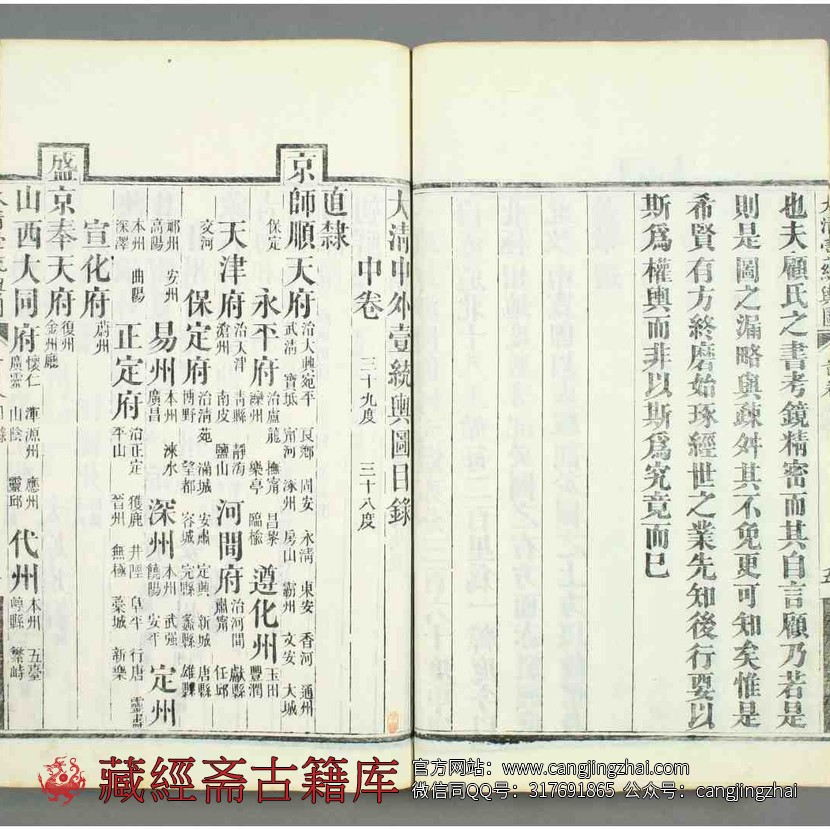 也夫顧氏之書考鏡精密而其自言顧乃若是
則是圖之漏略與疎舛其不免更可知矣惟是
希賢有方終磨始琢經世之業先知後行要以
斯爲權輿而非以斯爲究竟而已
大淸中外壹統輿圖目錄
中卷 三十九度 三十八度
直隸
京師順天府 治大興宛平 良鄉 固安 永淸 東安 香河 通州 武淸 寶坻 甯河 涿州 房山 霸州 文安 大城
保定 永平府 治盧龍 撫甯 昌黎 灤州 樂亭 臨榆 遵化州 玉田 豐潤
天津府 治天津 靑縣 靜海 滄州 南皮 鹽山 河間府 治河間 獻縣 肅甯 任邱
交河 保定府 治淸苑 滿城 安肅 定興 新城 唐縣 博野 望都 容城 完縣 蠡縣 雄縣
祁州 安州 高陽 易州 本州 淶水 廣昌 深州 本州 武强 饒陽 安平 定州
本州 曲陽 深澤 正定府 治正定 獲鹿 井陘 阜平 行唐 靈壽 平山 晉州 無極 藁城 新樂
宣化府 蔚州
盛京奉天府 復州 金州廳
山西大同府 懷仁 渾源州 應州 廣靈 山陰 靈邱 代州 本州 五臺 崞縣 繁峙
藏經斋古籍库
官方网站：www.cangjingzhai.com
微信同QQ号：317691865 公众号：cangjingzhai